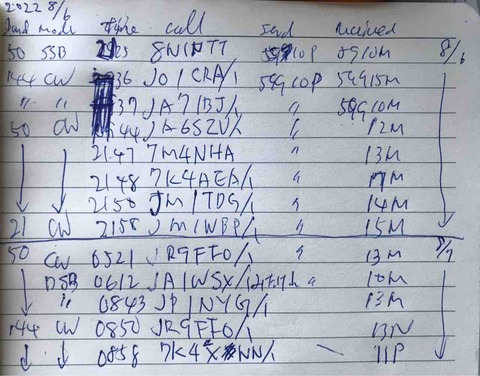 2022 8/6
Band mode time call Send Received
50 SSB 8N1NTT 59 10P 5910M 8/6
144 CW JO1CRA/1 59910P 59915M
" " 37 JA7IBJ/1 " 59910M
50 CW 44 JA6SZV/1 " 12M
2147 7M4NHA " 13M
2148 7K4AEA/1 "
2150 JM1TDG/1 " 14M
21 CW 2158 JM1WBP/1 " 15M
50 CW 0521 JR9FFO/1 " 13M 8/7
DSB 0612 JA1WSX/1 " 10M
" 0843 JP1NYG/1 13M
144 CW 0850 JR9FFO/1
0858 7K4XNN/1 11P